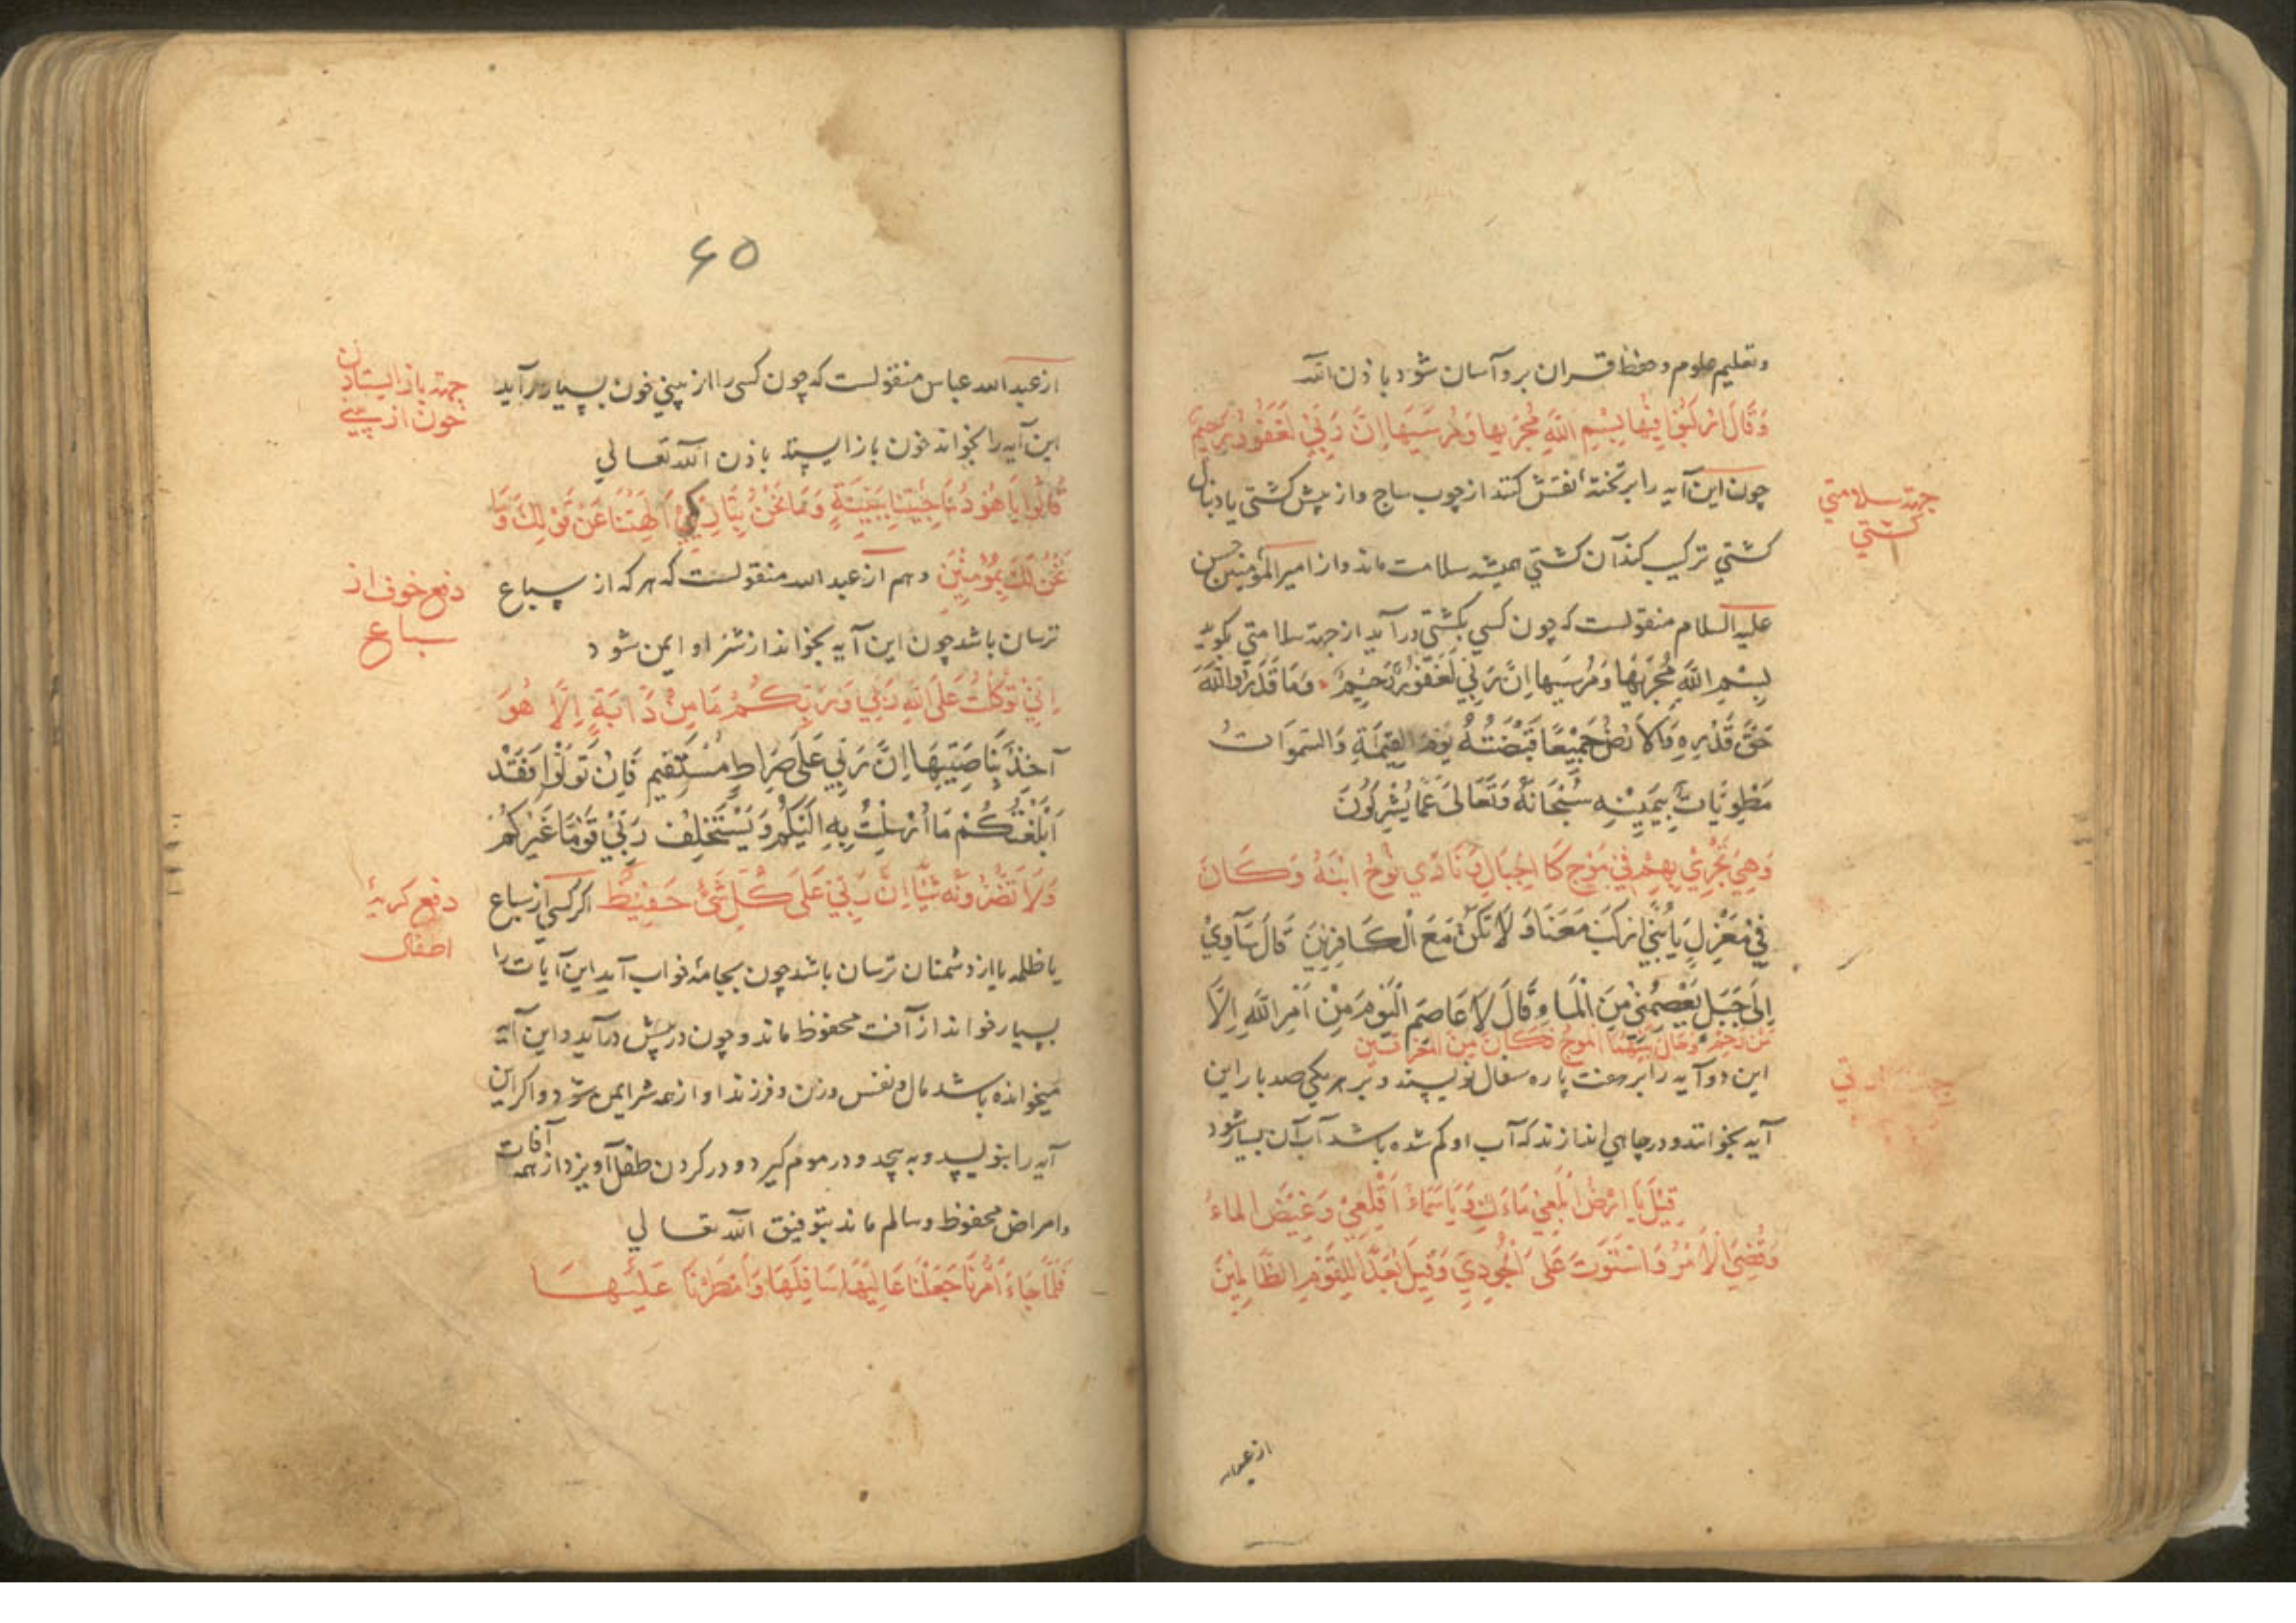 وتعلیم علوم و حفظ قران برو آسان شود باذن الله
وَقَالَ ارْكَبُوا فِيْهَا بِسْمِ اللهِ مُجْرٰيهَا وَمُرْسٰيهَا اِنَّ رَبِّيْ لَغَفُوْرٌ رَحِيْمٌ
چون این آیه را بر تخته نقش کنند از چوب ساج و از پیش کشتی یا دنبال
کشتی ترکیب کند آن کشتی همیشه سلامت ماند و از امیر المؤمنین حسن
علیه السلام منقولست که چون کسی بکشتی در آید از جهة سلامتی بکوید
بِسْمِ اللهِ مُجْرٰيهَا وَمُرْسٰيهَا اِنَّ رَبِّيْ لَغَفُوْرٌ رَحِيْمٌ وَمَا قَدَرُوا اللهَ
حَقَّ قَدْرِهِ وَالْاَرْضُ جَمِيْعًا قَبْضَتُهُ يَوْمَ الْقِيٰمَةِ وَالسَّمٰوَاتُ
مَطْوِيَّاتٌ بِيَمِيْنِهِ سُبْحَانَهُ وَتَعَالٰى عَمَّا يُشْرِكُوْنَ
وَهِيَ تَجْرِيْ بِهِمْ فِيْ مَوْجٍ كَالْجِبَالِ وَنَادٰي نُوْحُ ابْنَهُ وَكَانَ
فِيْ مَعْزِلٍ يَابُنَيَّ ارْكَبْ مَعَنَا وَلَا تَكُنْ مَعَ الْكَافِرِيْنَ قَالَ سَآوِيْ
اِلٰى جَبَلٍ يَعْصِمُنِيْ مِنَ الْمَاءِ قَالَ لَا عَاصِمَ الْيَوْمَ مِنْ اَمْرِ اللهِ اِلَّا
مَنْ رَحِمَ وَحَالَ بَيْنَهُمَا الْمَوْجُ فَكَانَ مِنَ الْمُغْرَقِيْنَ
این دو آیه را بر هفت پاره سفال نویسند و بر هر یکی صد بار این
آیه بخوانند و در چاهی اندازند که آب او کم شده باشد آب آن بسیار شود
قِيْلَ يَا اَرْضُ ابْلَعِيْ مَاءَكِ وَيَا سَمَاءُ اَقْلِعِيْ وَغِيْضَ الْمَاءُ
وَقُضِيَ الْاَمْرُ وَاسْتَوَتْ عَلَى الْجُوْدِيِّ وَقِيْلَ بُعْدًا لِلْقَوْمِ الظَّالِمِيْنَ
جهة سلامتی
کشتی
۶۵
از عبد الله عباس منقولست که چون کسی را از بینی خون بسیار بر آید
این آیه را بخواند خون باز ایستد باذن الله تعالی
قَالُوْا يَا هُوْدُ مَا جِئْتَنَا بِبَيِّنَةٍ وَمَا نَحْنُ بِتَارِكِيْ اٰلِهَتِنَا عَنْ قَوْلِكَ وَمَا
نَحْنُ لَكَ بِمُؤْمِنِيْنَ وهم از عبد الله منقولست که هر که از سباع
ترسان باشد چون این آیه بخواند از شر او ایمن شود
اِنِّيْ تَوَكَّلْتُ عَلَى اللهِ رَبِّيْ وَرَبِّكُمْ مَا مِنْ دَابَّةٍ اِلَّا هُوَ
آخِذٌ بِنَاصِيَتِهَا اِنَّ رَبِّيْ عَلٰى صِرَاطٍ مُسْتَقِيْمٍ فَاِنْ تَوَلَّوْا فَقَدْ
اَبْلَغْتُكُمْ مَا اُرْسِلْتُ بِهِ اِلَيْكُمْ وَيَسْتَخْلِفُ رَبِّيْ قَوْمًا غَيْرَكُمْ
وَلَا تَضُرُّوْنَهُ شَيْئًا اِنَّ رَبِّيْ عَلٰى كُلِّ شَيْءٍ حَفِيْظٌ اکر کسی از سباع
یا ظلمه یا از دشمنان ترسان باشد چون بجامه خواب آید این آیات را
بسیار خواند از آفت محفوظ ماند و چون در پیش در آید و این آیه
میخوانده باشد مال و نفس و زن و فرزند او از همه شر ایمن شود و اکر این
آیه را بنویسد و به پیچد و در موم کیرد و در کردن طفل آویزد از همه آفات
وامراض محفوظ و سالم ماند بتوفیق الله تعالی
فَلَمَّا جَاءَ اَمْرُنَا جَعَلْنَا عَالِيَهَا سَافِلَهَا وَاَمْطَرْنَا عَلَيْهَا
جهة باز ایستادن
خون از بینی
دفع خوف از
سباع
دفع کریه
اطفال